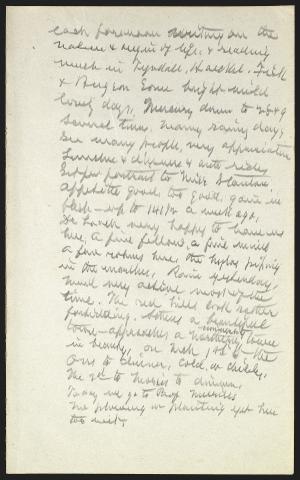 each forenoon writing on the
nature & origin of life, & reading
much in Tyndall, Haeckel, Fiske
& Bergson. Some bright mild
lovely days, Mercury down to
several times. Many rainy days.
See many people, very appreciative
Lunches & dinners & auto rides
Sit for portrait to Miss
Appetite good, too good, gain in
flesh — up to 141 1/2 a week ago.
Dr. very happy to have us
here. A fine fellow, a fine mind
A few robins here, the hylas piping
in the marshes. Rain yesterday,
mind very active most of the
time. The red hills look rather
forbidding. Athens a beautiful
town — approaches a northern town
in beauty. On Mch 1st to the
to dinner, cold, or chilly.
The 2nd to Morris to dinner.
Today we go to
No plowing or planting yet here
too wet.